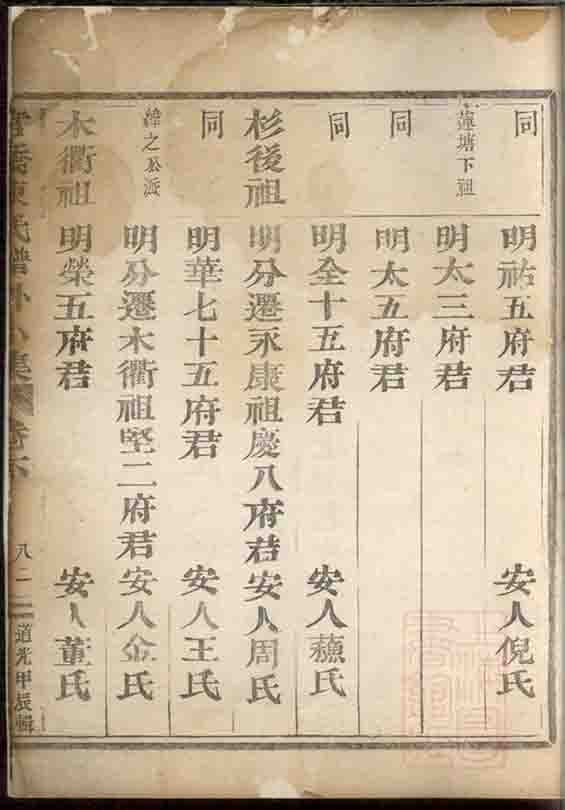 同 明祐五府君 安人倪氏
蓮塘下祖 明太三府君
同 明太五府君
同 明全十五府君 安人蘓氏
杉後祖 明分遷永康祖慶八府君安人周氏
同 明華七十五府君 安人王氏
緯之公派 明分遷木衢祖堅二府君安人金氏
木衢祖 明榮五府君 安人董氏
氏譜外 集 卷六 八二 道光甲辰輯